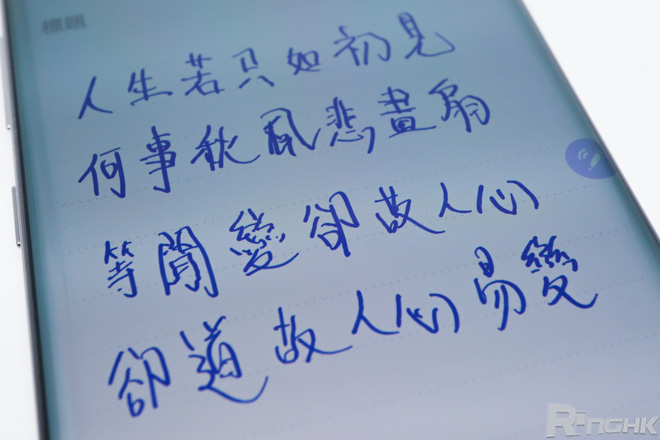 標題
人生若只如初見
何事秋風悲畫扇
等閒變卻故人心
卻道故人心易變
RingHK